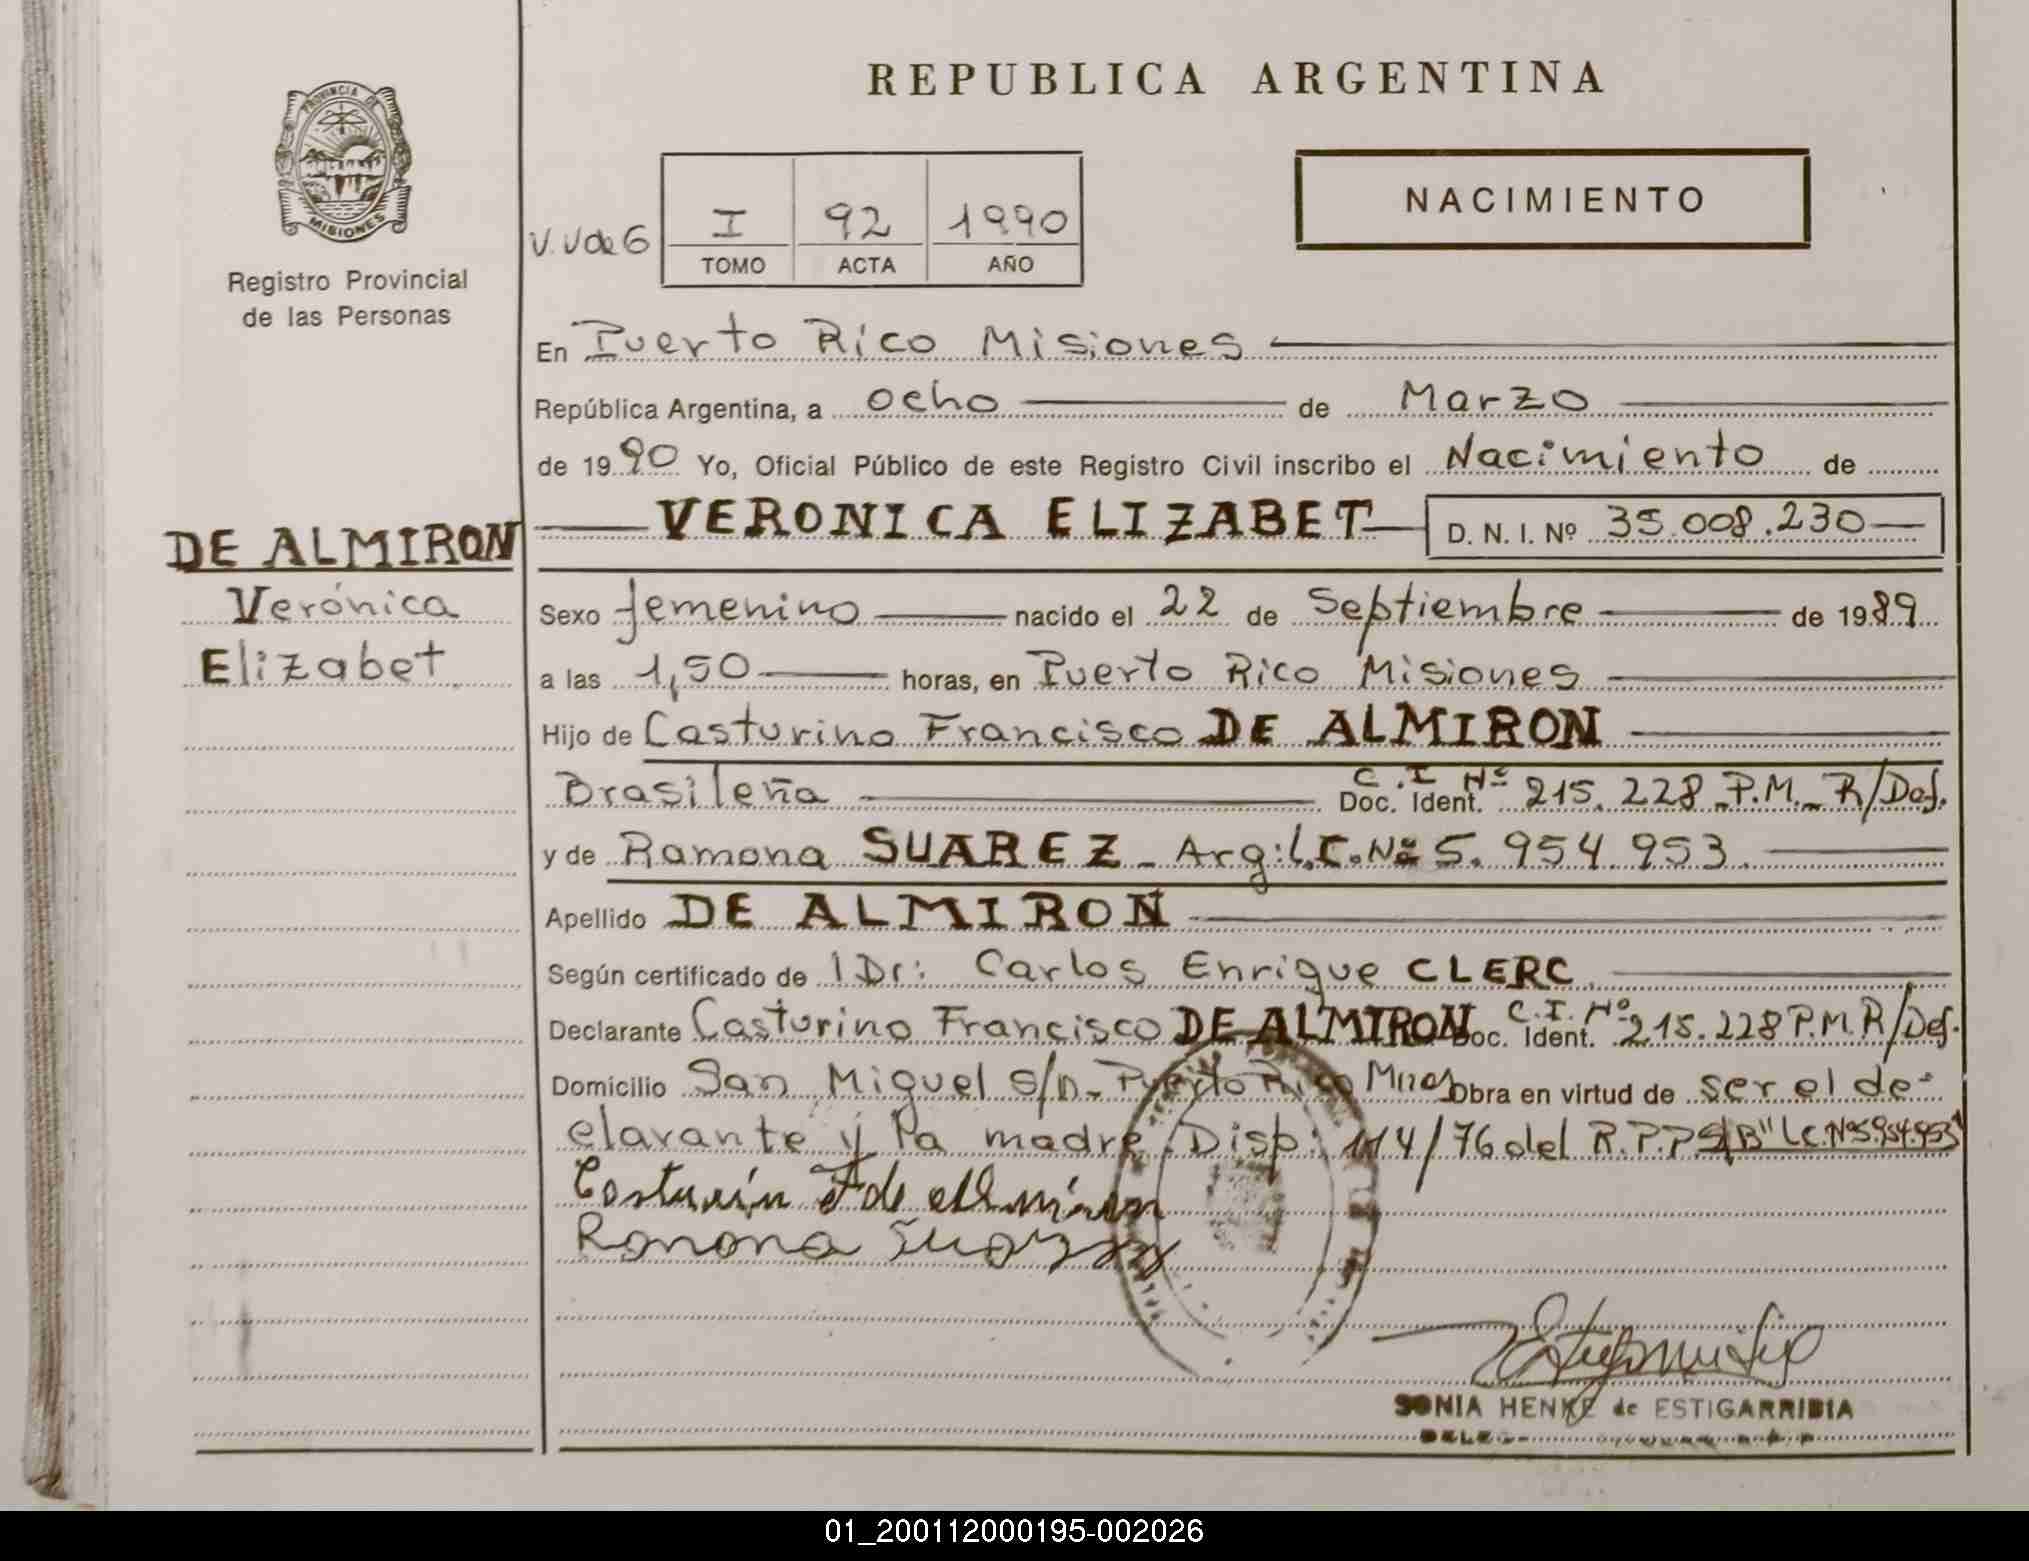 REPUBLICA ARGENTINA
PROVINCIA DE
MISIONES
Registro Provincial
de las Personas
NACIMIENTO
I 92 1990
TOMO ACTA AÑO
En Puerto Rico Misiones
República Argentina, a ocho de Marzo
de 1990 Yo, Oficial Público de este Registro Civil inscribo el Nacimiento de
VERONICA ELIZABET D. N. I. Nº 35.008.230
DE ALMIRON
Verónica
Elizabet
Sexo femenino nacido el 22 de Septiembre de 1989
a las 1,50 horas, en Puerto Rico Misiones
Hijo de Casturino Francisco DE ALMIRON
Brasileña C.I Nº Doc. Ident. 215.228 P.M. R/Def.
y de Ramona SUAREZ - Arg: L.C. Nº 5.954.953
Apellido DE ALMIRON
Según certificado de l Dr: Carlos Enrique CLERC
Declarante Casturino Francisco DE ALMIRON C.I. Nº Doc. Ident. 215.228 P.M. R/Def.
Domicilio San Miguel s/n - Puerto Rico Mnes Obra en virtud de ser el de-
clarante y la madre. Disp: 114/76 del R.P.P. S/B" L.C. Nº 5.954.953
Ramona Suarez
SONIA HENKE de ESTIGARRIBIA
01_200112000195-002026